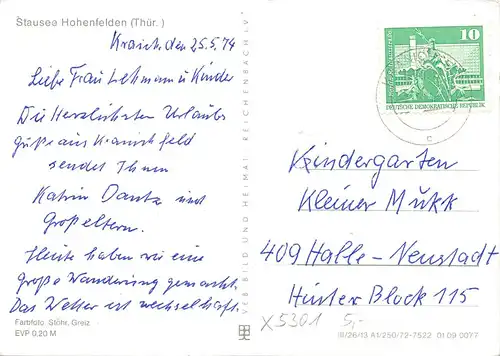 Stausee Hohenfelden (Thür.)
Kranich, den 25.5.74
Liebe Frau Lehmann u. Kinder
Die Herzlichsten Urlaubs
grüße aus Kranichfeld
sendet Ihnen
Katrin Dantz und
Großeltern.
Heute haben wir eine
große Wanderung gemacht.
Das Wetter ist wechselhaft.
Farbfoto: Stöhr, Greiz
EVP 0,20 M
VEB BILD UND HEIMAT REICHENBACH i.V.
10
DEUTSCHE DEMOKRATISCHE REPUBLIK
Kindergarten
Kleiner Mukk
409 Halle-Neustadt
Hinter Block 115
X5301 5,-
III/26/13 A1/250/72-7522 01 09 0077